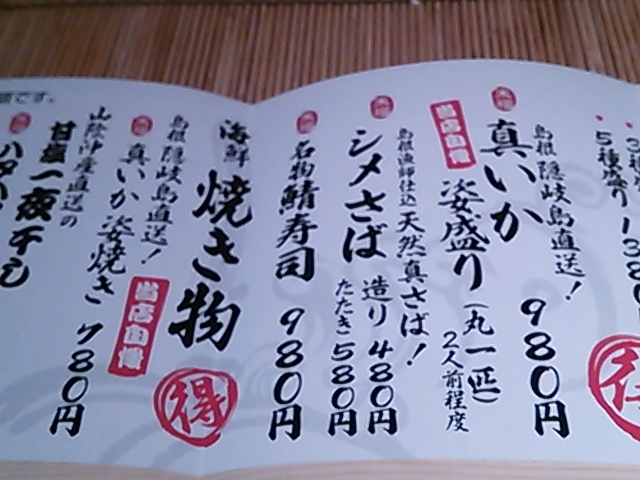 5種盛り
島根 隠岐島直送!
真いか
姿盛り(丸一匹)
2人前程度
980円
当店自慢
島根漁師仕込 天然真さば!
シメさば
造り 480円
たたき 580円
名物 鯖寿司
980円
海鮮 焼き物
得
島根 隠岐島直送!
真いか 姿焼き
当店自慢
780円
山陰沖産直送の
甘塩一夜干し
です。